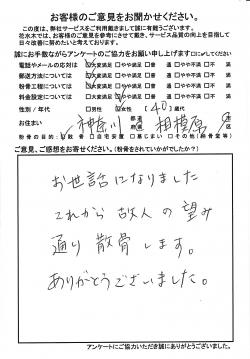 お客様のご意見をお聞かせください。
この度は、弊社サービスをご利用頂きまして誠に有難うございます。
花水木では、お客様のご意見を参考にさせて戴き、サービス品質の向上を目指して
日々改善に努めたいと考えております。
誠にお手数ながらアンケートのご協力をお願い申し上げます
電話やメールの応対は □大満足 □やや満足 □普通 □やや不満 □不満
郵送方法については □大満足 □やや満足 □普通 □やや不満 □不満
粉骨工程については □大満足 □やや満足 □普通 □やや不満 □不満
料金設定については □大満足 □やや満足 □普通 □やや不満 □不満
性別/年代 □男性 □女性 〔40〕歳代
お住まい 神奈川 相模原
粉骨の目的 □散骨 □自宅安置 □墓じまい □その他
ご意見、ご感想をお寄せください。(粉骨をされていかがでしたか?)
お世話になりました
これから故人の望み
通り散骨します。
ありがとうございました。
アンケートにご協力いただき誠にありがとうございました。